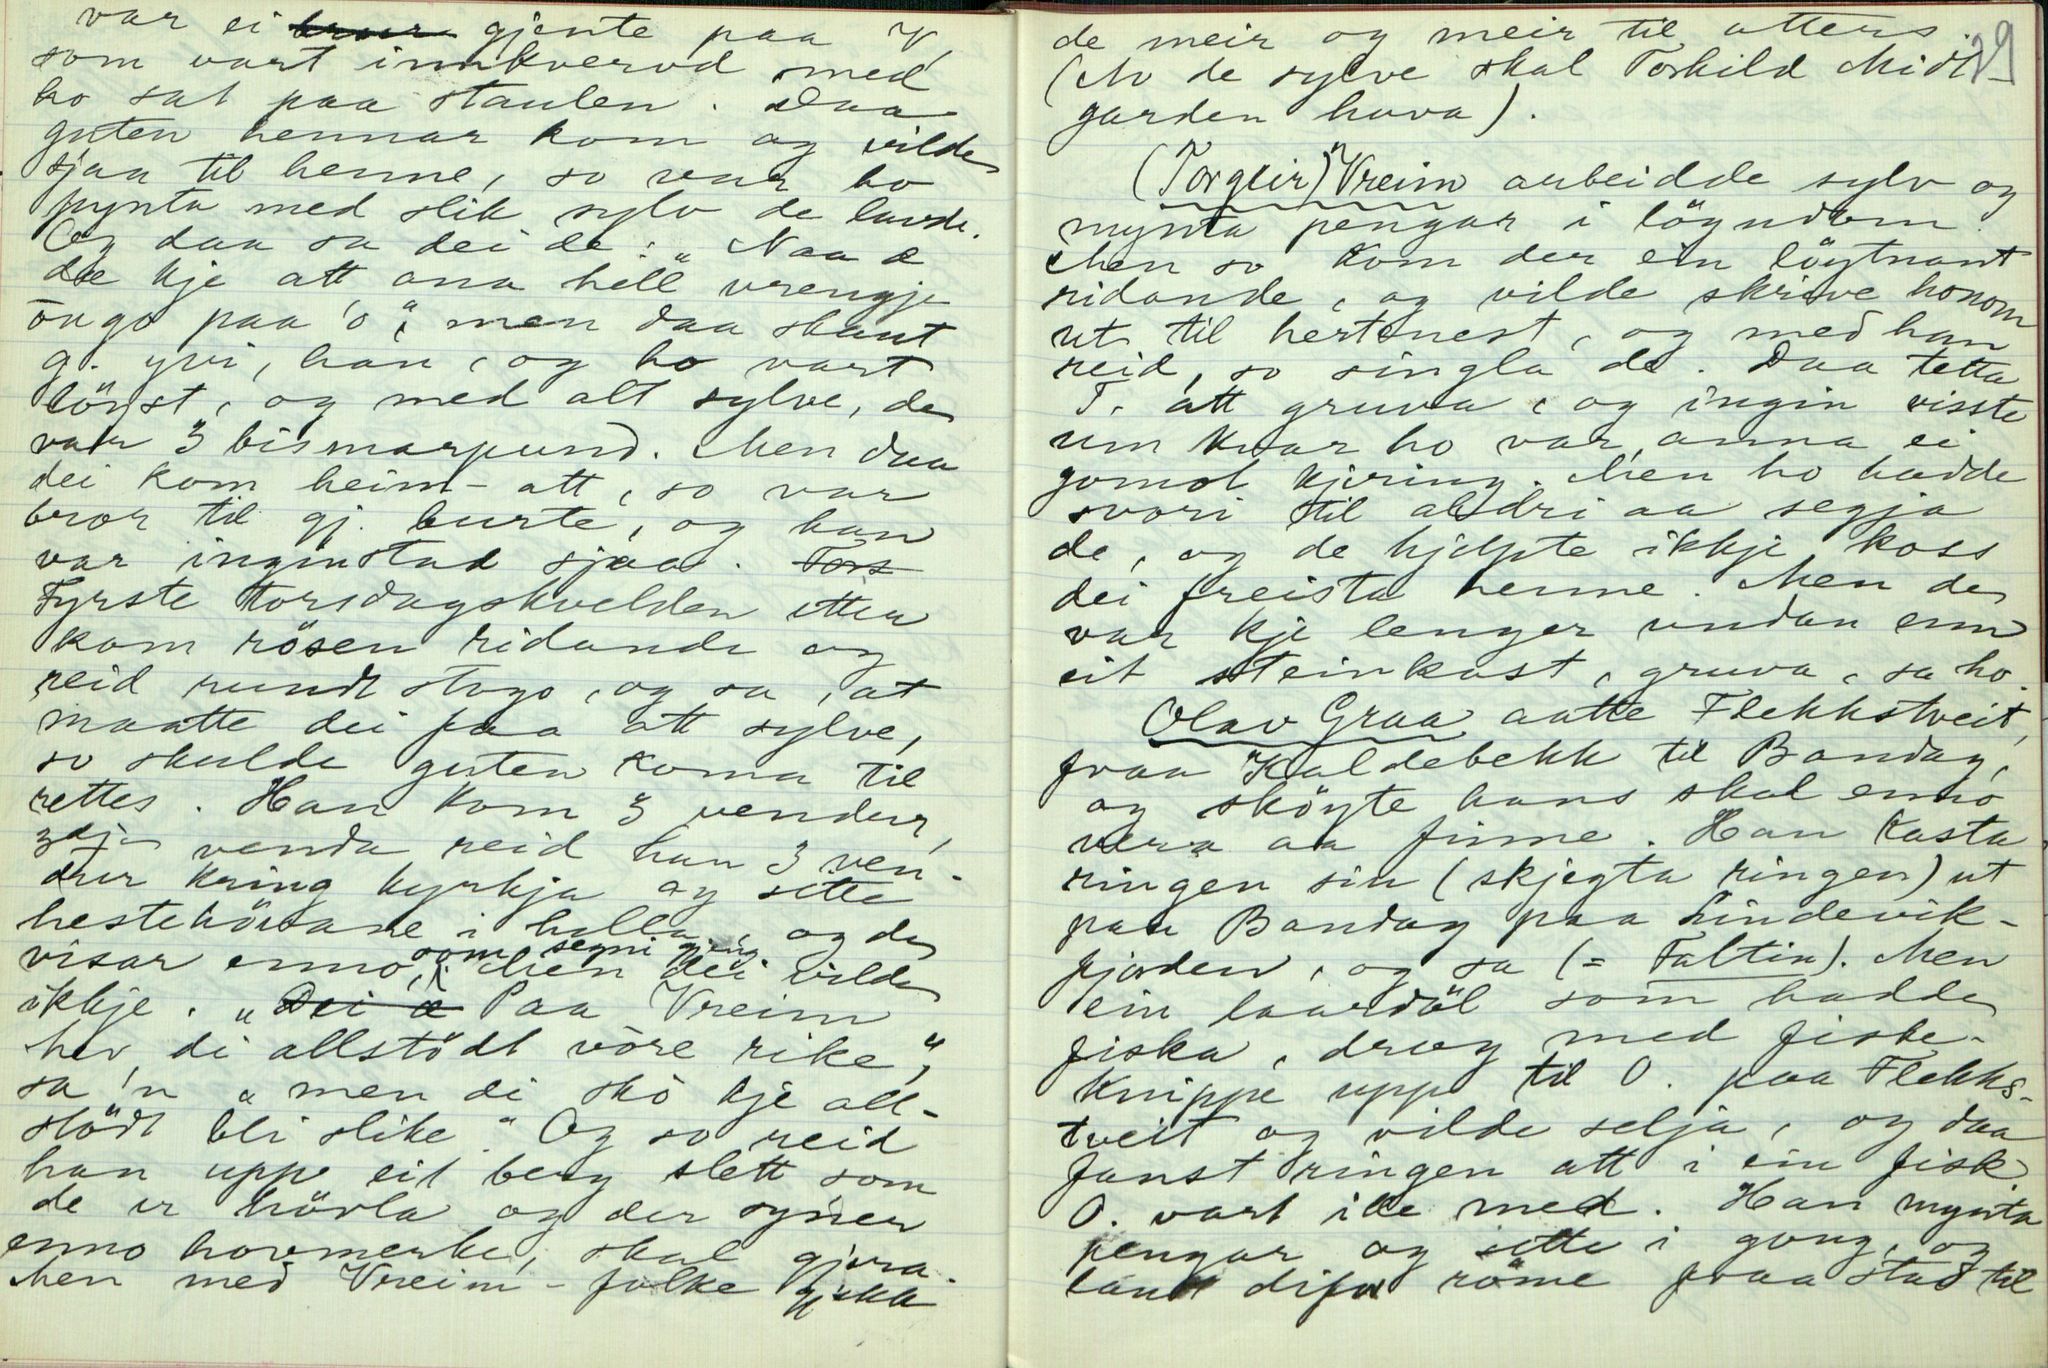 var ei gjente paa V.
som vart innkvervd med
ho sat paa staulen. Daa
guten hennar kom og vilde
sjaa til henne, so var ho
pynta med slik sylv de lavde.
Og daa sa dei de: "Naa æ
dæ kje att ana hell vrengje
ougo paa 'o", men daa skaut
g. yvi, han, og ho vart
löyst, og med alt sylve, de
var 3 bismarpund. Men daa
dei kom heim-att, so var
bror til gj. burte, og han
var inginstad sjaa. Tors
Fyrste torsdagskvelden etter
kom rösen ridande og
reid rundt stogo, og sa, at
maatte dei faa att sylve,
so skulde guten koma til
rettes. Han kom 3 vendur,
3dje venda reid han 3 ven-
dur kring kyrkja og sette
hestehövane i hella, og de
visar enno, som segni gjeng. Men dei vilde
ikkje. "Dei æ Paa Vreim
hev di allstödt vöre rike",
sa 'n "men di sko kje all-
stödt bli slike". Og so reid
han uppe eit berg slett som
de er hövla og der syner
enno hovmerke, skal gjera.
Men med Vreim-folke gjekk
29
de meir og meir til atters.
(Av de sylve skal Torkild Midt-
garden hava).
(Torgeir) Vreim arbeidde sylv og
mynta pengar i löyndom.
Men so kom der ein löytnant
ridande, og vilde skrive honom
ut til hertenest, og med han
reid, so singla de. Daa tetta
T. att gruva, og ingin visste
um kvar ho var, anna ei
gomol kjering. Men ho hadde
svori til aldri aa segja
de, og de hjelpte ikkje koss
dei freista henne. Men de
var kje lenger undan enn
eit steinkast, gruva, sa ho.
Olav Graa aatte Flekkstveit,
fraa Kaldebekk til Bandag,
og sköyte hans skal enno
vera aa finne. Han kasta
ringen sin (skjegta ringen) ut
paa Bandag paa Lindevik-
fjorden, og sa (= Faltin). Men
ein laardöl som hadde
fiska, drog med fiske-
knippe upp til O. paa Flekks-
tveit og vilde selja, og daa
fanst ringen att i ein fisk
O. vart ille med. Han mynta
pengar og sette i gong, og
laut difor röme fraa stad til